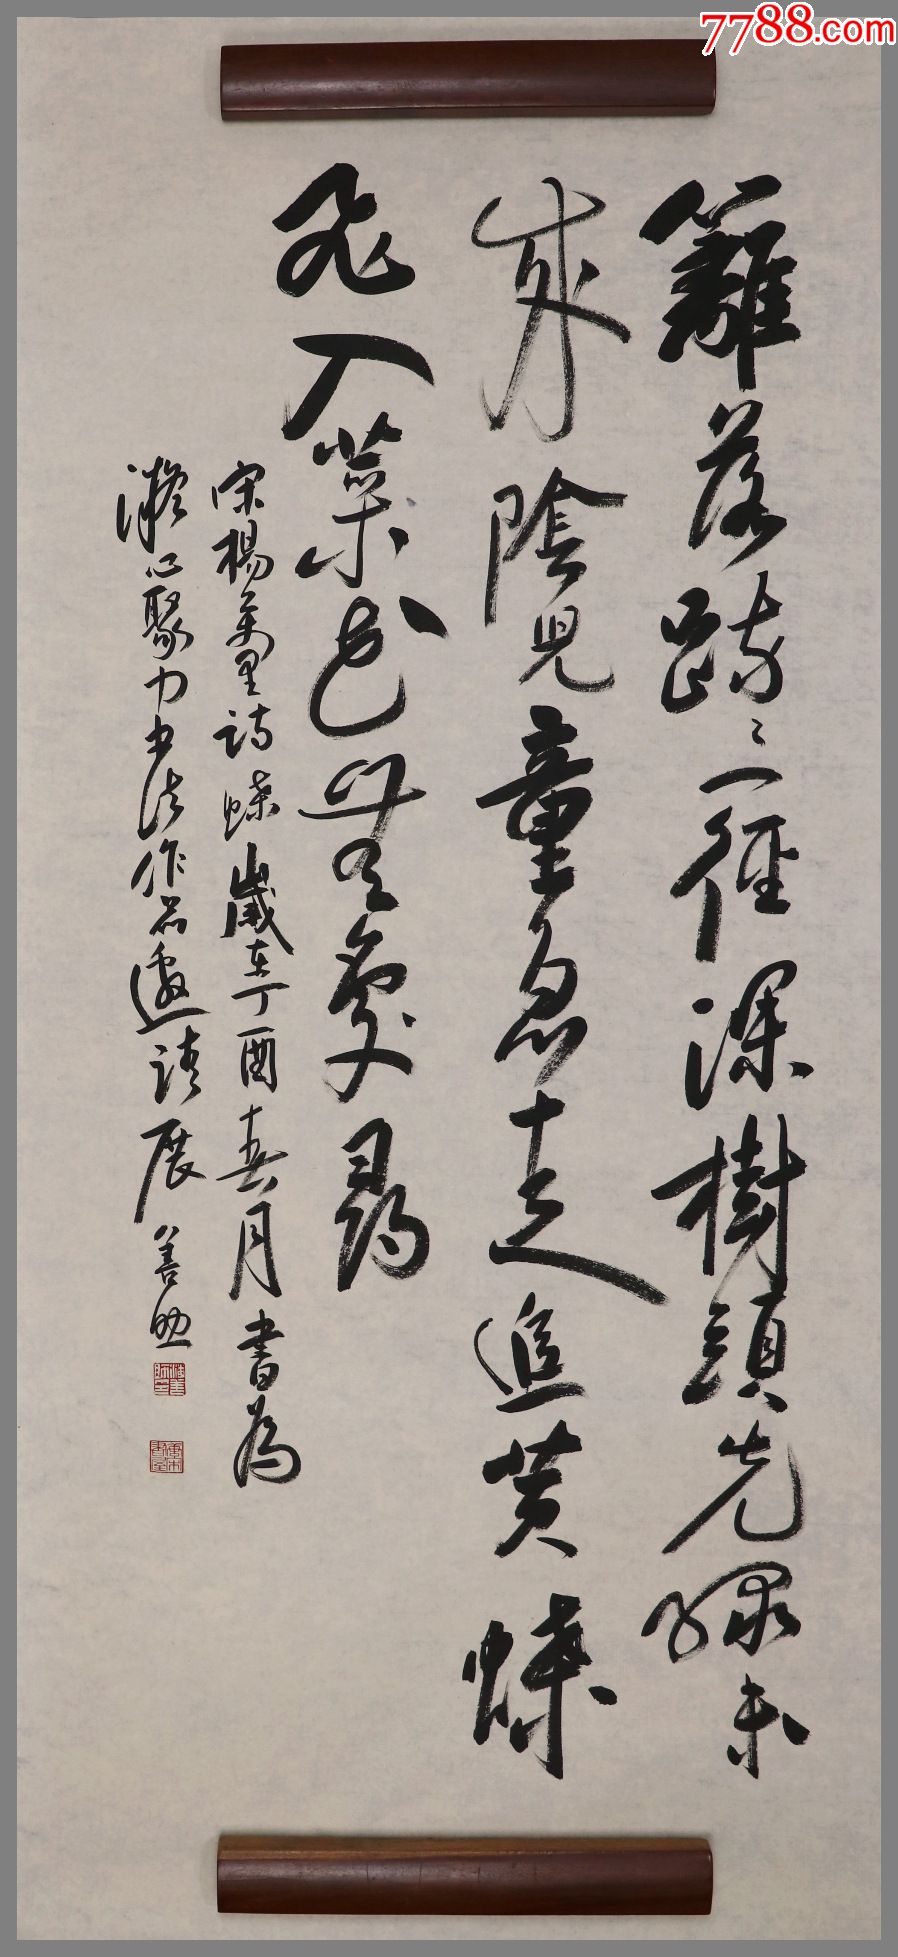 7788.com
籬落踈〻一徑深樹頭先綠未
成陰兒童急走追黄蝶
飛入菜花無處尋
宋楊萬里詩蝶歲在丁酉春月書為
凝心聚力书法作品邀請展善